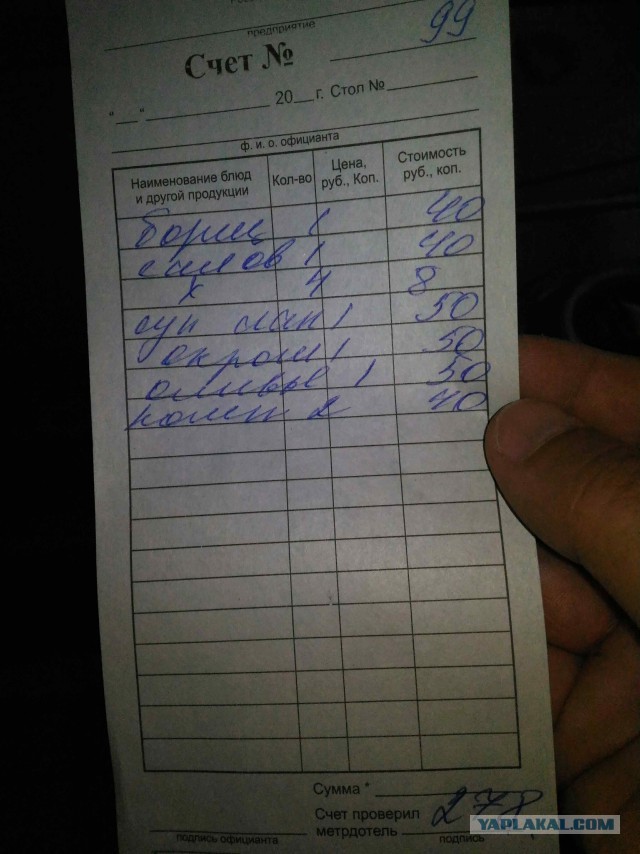 предприятие
99
Счет №
"__"__________ 20__г. Стол №
ф. и. о. официанта
Наименование блюд и другой продукции Кол-во Цена, руб., Коп. Стоимость руб., коп.
борщ 1 40
1 40
х 4 8
суп 1 50
окрош 1 50
оливье 1 50
2 40
Сумма *
Счет проверил
метрдотель 278
подпись официанта подпись
YAPLAKAL.COM